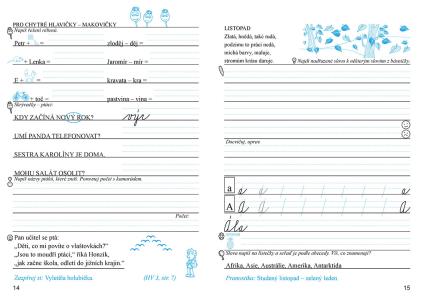 PRO CHYTRÉ HLAVIČKY – MAKOVIČKY
Napiš řešení rébusů.
Petr + =
zloděj – děj =
+ Lenka =
Jaromír – mír =
E + =
kravata – kra =
+ toč =
pastvina – vina =
Skrývačky - ptáci
KDY ZAČÍNÁ NOVÝ ROK?
výr
UMÍ PANDA TELEFONOVAT?
SESTRA KAROLÍNY JE DOMA.
MOHU SALÁT OSOLIT?
Napiš názvy ptáků, které znáš. Porovnej počet s kamarádem.
Počet:
Pan učitel se ptá:
„Děti, co mi povíte o vlaštovkách?"
„Jsou to moudří ptáci," říká Honzík,
„jak začne škola, odletí do jižních krajin."
Zazpívej si: Vyletěla holubička.
(HV 3, str. 7)
14
LISTOPAD
Zlatá, hnědá, také rudá,
podzimu to práci nedá,
míchá barvy, maluje,
stromům krásu daruje.
Napiš nadřazené slovo k odlišeným slovům z básničky.
Doceňuj, oprav
a a
A A
Ála
Slova napiš na lístečky a seřaď je podle abecedy. Víš, co znamenají?
Afrika, Asie, Austrálie, Amerika, Antarktida
Pranostika: Studený listopad – zelený leden.
15